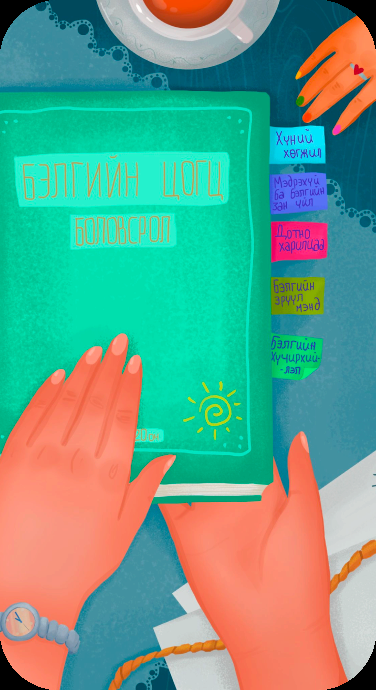 БЭЛГИЙН ЦОГЦ
БОЛОВСРОЛ
Хүний
хөгжил
Мэдрэхүй
ба бэлгийн
зан үйл
Дотно
харилцаа
Бэлгийн
эрүүл
мэнд
Бэлгийн
хүчирхий-
-лэл